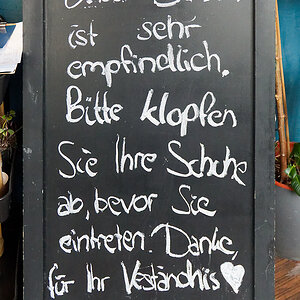 ist sehr
empfindlich.
Bitte klopfen
Sie Ihre Schuhe
ab, bevor Sie
eintreten. Danke,
für Ihr Veständnis